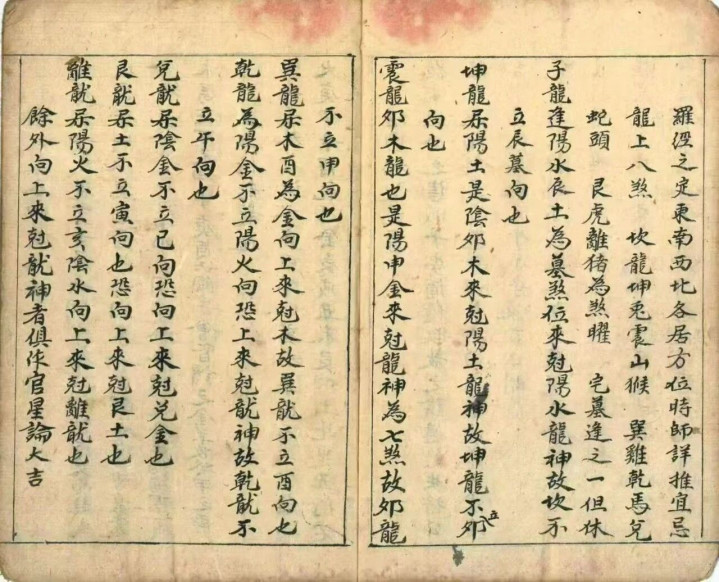 羅經之定東南西北各居方位時師詳推宜忌
龍上八煞 坎龍坤兎震山猴 巽雞乾馬兌
蛇頭 艮虎離猪為煞曜 宅墓逢之一但休
子龍逢陽水辰土為墓煞位來尅陽水龍神故坎不
立辰墓向也
坤龍屬陽土是陰卯木來尅陽土龍神故坤龍不立卯
向也
震龍卯木龍也是陽申金來尅龍神為七煞故卯龍
不立申向也
巽龍屬木酉為金向上來尅木故巽龍不立酉向也
乾龍為陽金不立陽火向恐上來尅龍神故乾龍不
立午向也
兌龍屬陰金不立巳向恐向上來尅兌金也
艮龍屬土不立寅向也恐向上來尅艮土也
離龍屬陽火不立亥陰水向上來尅離龍也
餘外向上來尅龍神者俱作官星論大吉